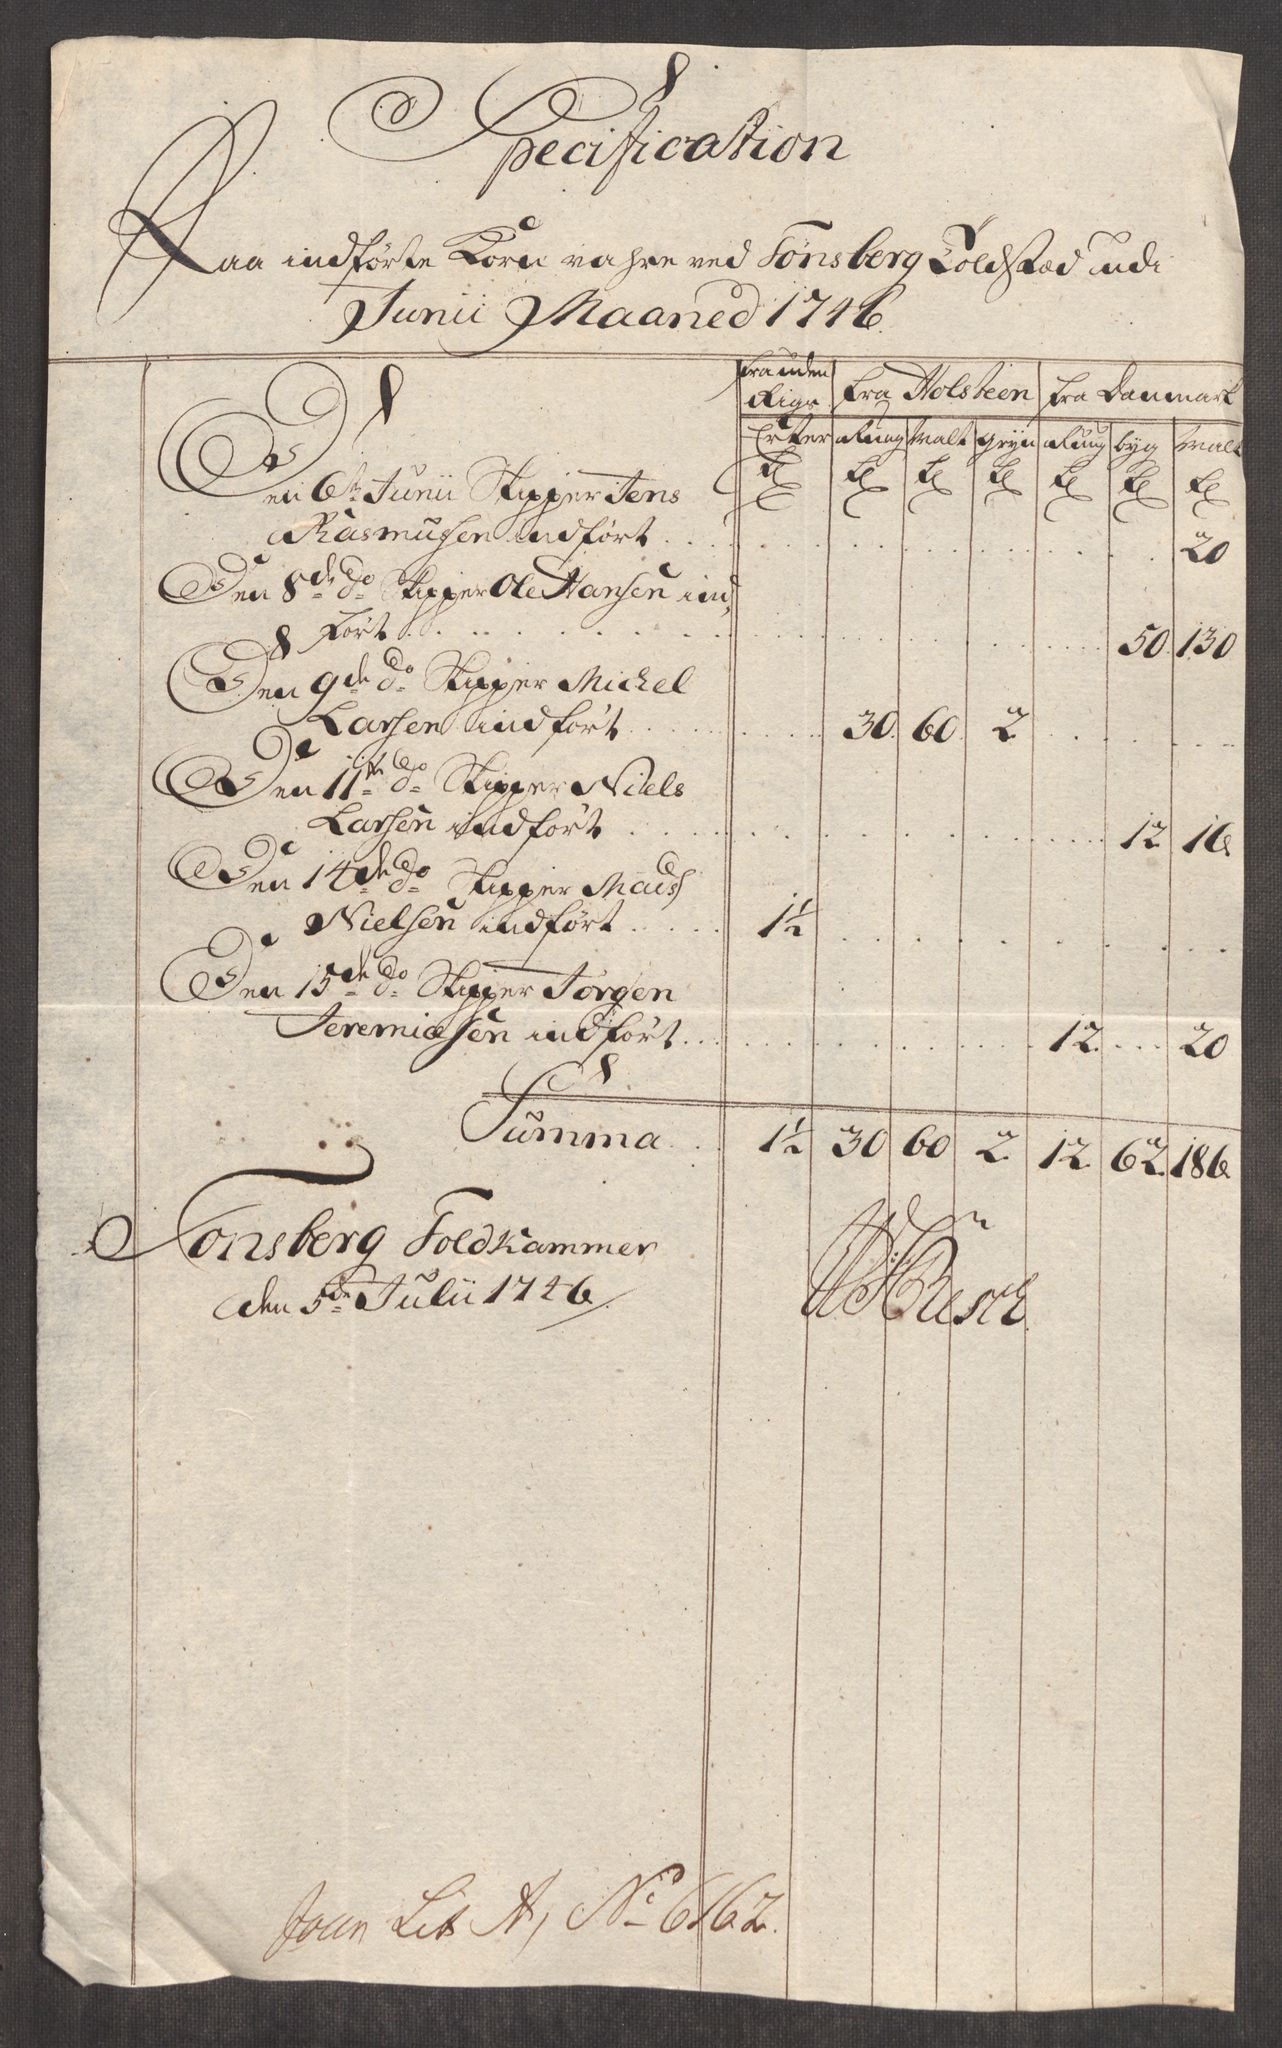 Specification
Paa indførte Korn vahre ved Tønsberg Toldsted udi
Junii Maaned 1746.
fra uden Rigs | fra Holsteen | fra Danmark
Erter | Rug | Malt | gryn | Rug | byg | Malt
Den 6te Junii Skipper Jens
Rasmusen indført . . . 20
Den 8de do Skipper Ole Hansen ind-
ført . . . 50 130
Den 9de do Skipper Michel
Larsen indført . . . 30 60 2
Den 11te do Skipper Niels
Larsen indført . . . 12 16
Den 14de do Skipper Mads
Nielsen indført . . . 1½
Den 15de do Skipper Jørgen
Jeremiæsen indført . . . 12 20
Summa . . 1½ 30 60 2 12 62 186
Tonsberg Toldkammer
den 5te Julii 1746.
Lit A, No 6162.